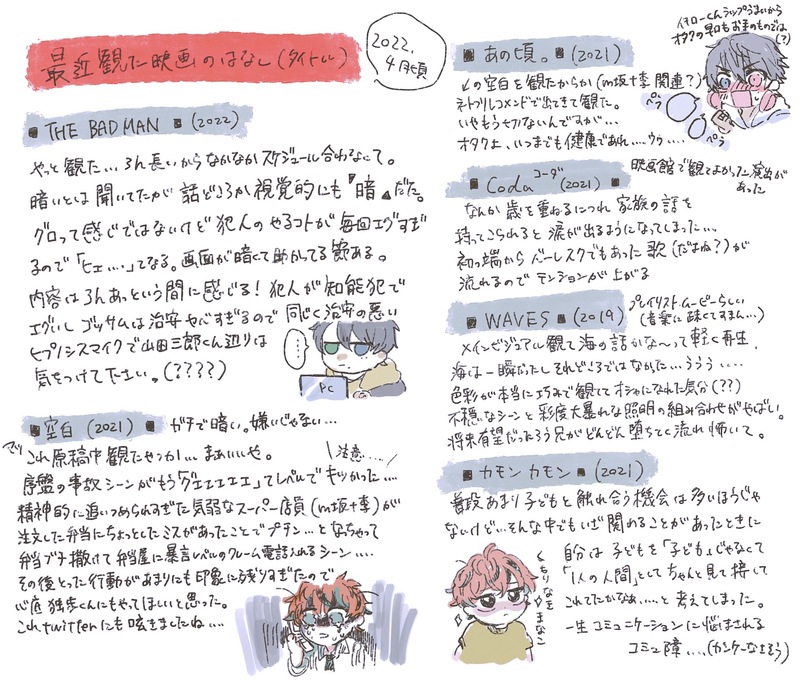 最近観た映画のはなし(タイトル)
2022.
4月頃
■ THE BADMAN ■ (2022)
やっと観た…3h長いからなかなかスケジュール合わなくて。
暗いとは聞いてたが話どころか視覚的にも『暗』だた。
グロって感じではないけど犯人のやるコトが毎回エグすぎ
るので「ヒェ…」てなる。画面が暗くて助かってる節ある。
内容は3hあっという間に感じる!犯人が知能犯で
エグいし ゴッサムは治安ヤバすぎるので 同じく治安の悪い
ヒプノシスマイクで山田三郎くん辺りは
気をつけて下さい。(????)
…
PC
■ 空白 (2021) ■ ガチで暗い。嫌いじゃない…
これ原稿中観たやつか… まぁいいや。
注意…
序盤の事故シーンがもう「グエエエエエ」てレベルでキツかった…
精神的に追いつめられすぎた気弱なスーパー店員(m坂十李)が
注文した弁当にちょっとしたミスがあったことでプチン…となっちゃって
弁当ブチ撒けて弁当屋に暴言レベルのクレーム電話入れるシーン…
その後とった行動があまりにも印象に残りすぎたので
心底 独歩くんにもやってほしいと思った。
これtwitterにも呟きましたね…
■ あの頃。■ (2021)
イチローくんラップうまいから
オタクの早口もお手のものでは
(?)
↙の空白を観たからか(m坂十李 関連?)
ネトフリレコメンドで出てきて観た。
いやもう切ないんですが…
オタクよ、いつまでも健康であれ…ウゥ…
■ Coda コーダ (2021) ■
映画館で観てよかった演出が
あった
なんか歳を重ねるにつれ 家族の話を
持ってこられると 涙が出るようになってしまった…
初っ端からバーレスクでもあった歌(だよね?)が
流れるので テンションが上がる
■ WAVES ■ (2019)
プレイリストムービーらしい
(音楽に疎くてすまん…)
メインビジュアル観て海の話かな〜って軽く再生、
海は一瞬だったし それどころではなかた…ううう…
色彩が本当に巧みで観ててオシャになれた気分(??)
不穏なシーンと彩度大暴れな照明の組み合わせがやばい。
将来有望だったろう兄がどんどん堕ちてく流れ怖いて。
■ カモン カモン ■ (2021)
普段あまり子どもと触れ合う機会は多いほうじゃ
ないけど…そんな中でもいざ関わることがあったときに
自分は子どもを「子ども」じゃなくて
「1人の人間」としてちゃんと見て接して
これてたかなぁ…と考えてしまった。
一生コミュニケーションに悩まされる
コミュ障…(カンケーなさそう)